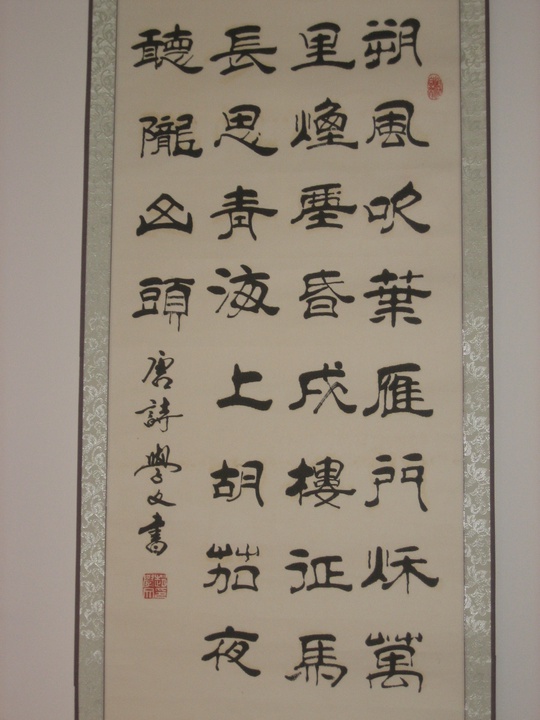 朔風吹葉雁門秋萬
里煙塵昏戍樓征馬
長思青海上胡笳夜
聽隴山頭 唐詩學文書